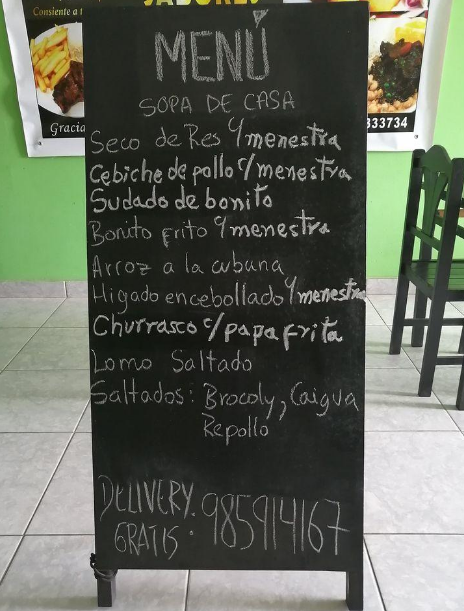 SABORES
Consiente a t
Gracia
333734
MENÚ
SOPA DE CASA
Seco de Res y menestra
Cebiche de pollo c/menestra
Sudado de bonito
Bonito frito y menestra
Arroz a la cubana
Higado encebollado y menestra
Churrasco c/papa frita
Lomo Saltado
Saltados: Brocoly, Caigua
Repollo
DELIVERY.
GRATIS. 985914167